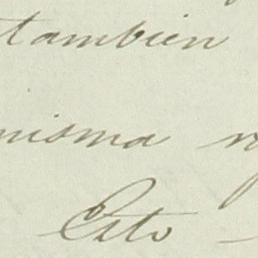 tambien
misma
Esto